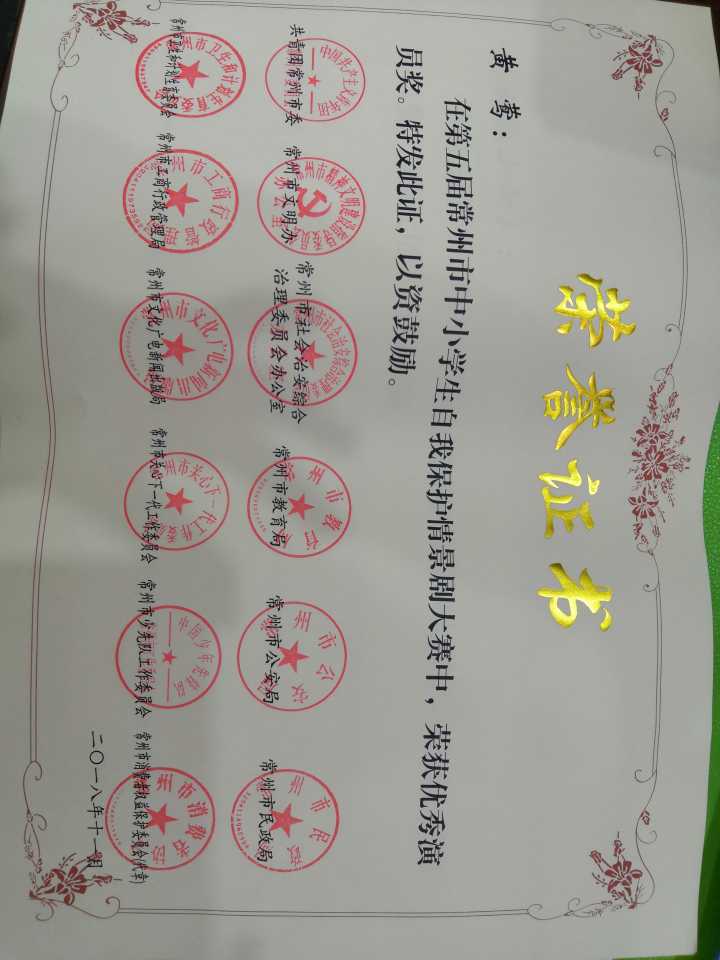 荣誉证书
黄莺：
在第五届常州市中小学生自我保护情景剧大赛中，荣获优秀演
员奖。特发此证，以资鼓励。
共青团常州市委 常州市文明办 常州市社会治安综合治理委员会办公室 常州市教育局 常州市公安局 常州市民政局
常州市卫生和计划生育委员会 常州市工商行政管理局 常州市文化广电新闻出版局 常州市关心下一代工作委员会 常州市少先队工作委员会 常州市消费者权益保护委员会(代章)
二〇一八年十一月